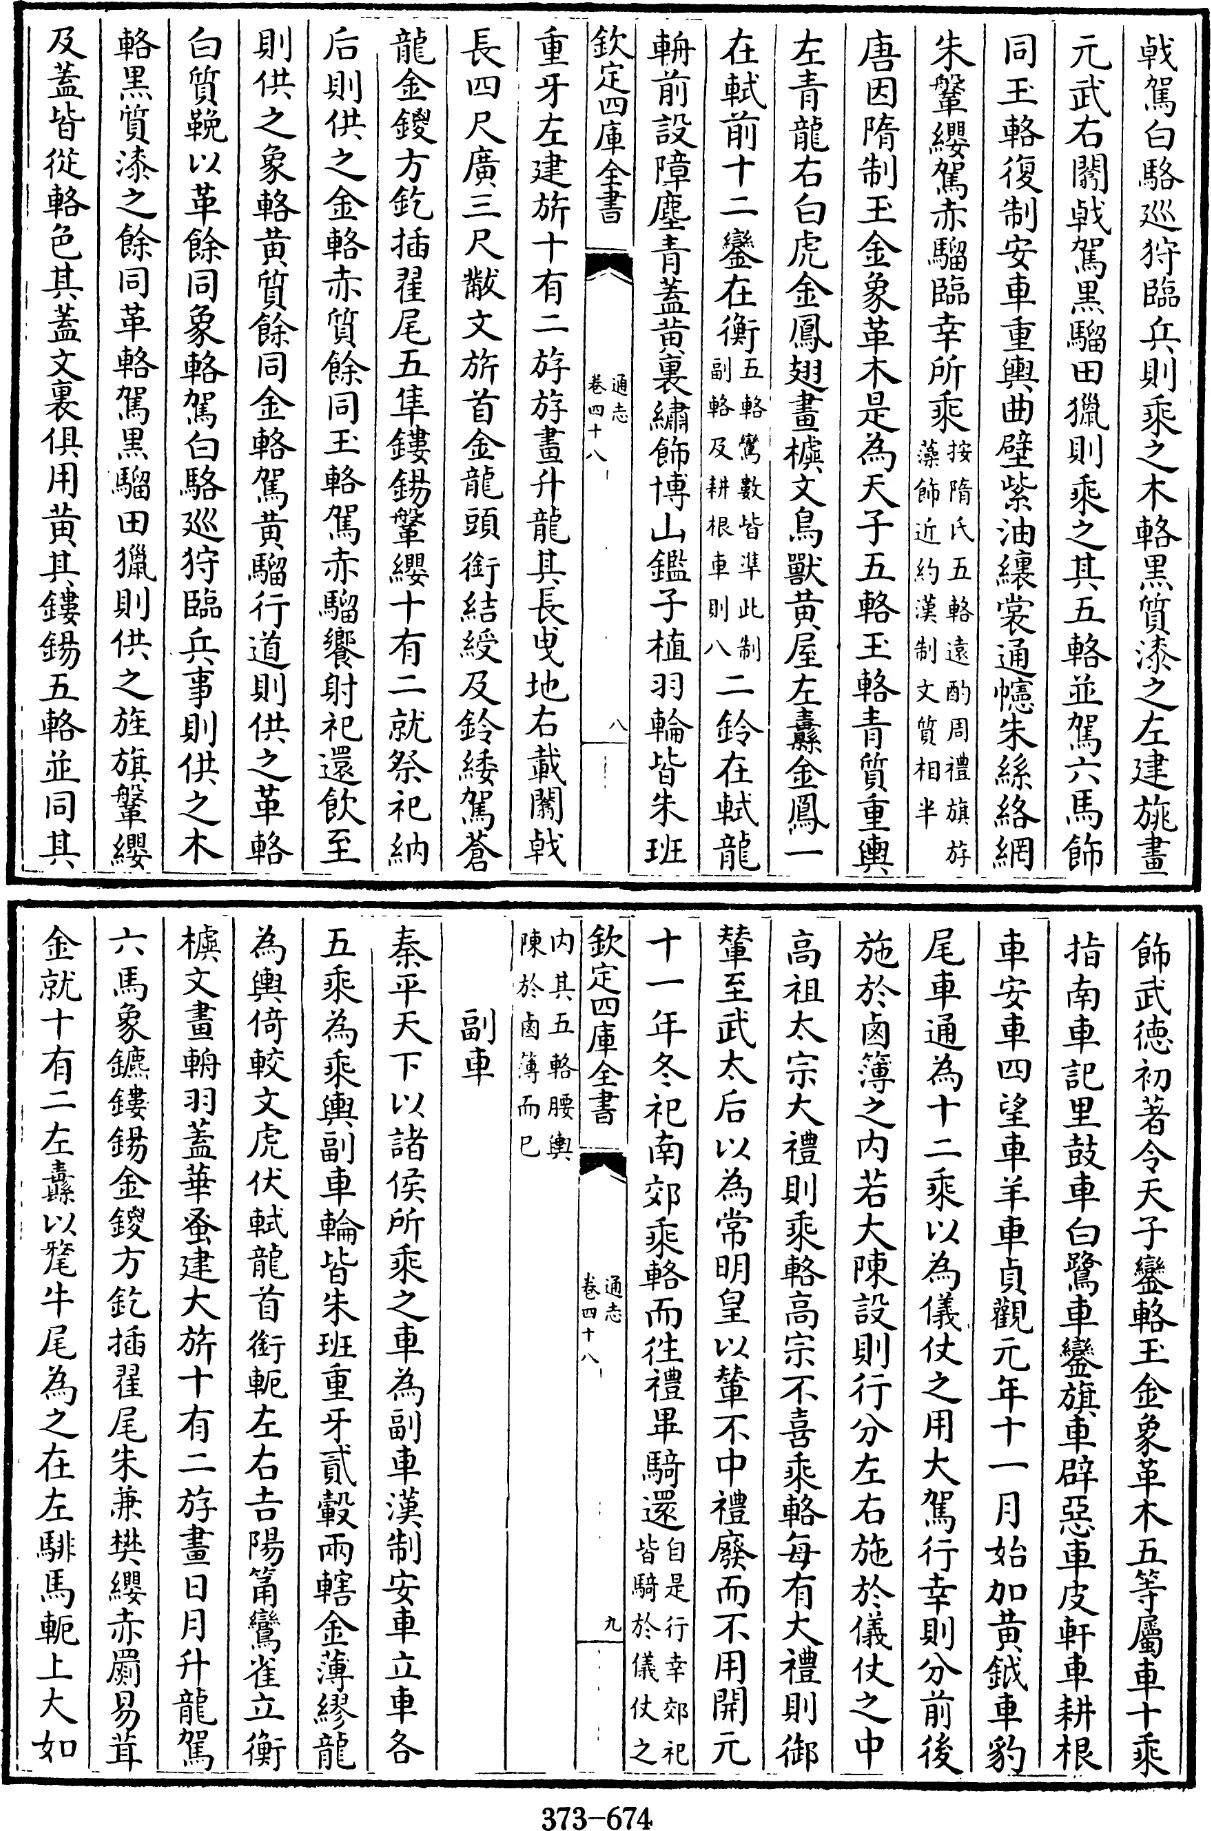 戟駕白駱巡狩臨兵則乘之木輅黑質漆之左建旐畫
元武右闟戟駕黑騮田獵則乘之其五輅並駕六馬飾
同玉輅復制安車重輿曲壁紫油纁裳通幰朱絲絡網
朱鞶纓駕赤騮臨幸所乘按隋氏五輅遠酌周禮旗斿
藻飾近約漢制文質相半
唐因隋制玉金象革木是為天子五輅玉輅青質重輿
左青龍右白虎金鳳翅畫橫文鳥獸黃屋左纛金鳳一
在軾前十二鑾在衡五輅鸞數皆準此制
副輅及耕根車則八二鈴在軾龍
輈前設障塵青蓋黃裏繡飾博山鑑子植羽輪皆朱班
欽定四庫全書
通志
卷四十八
八
重牙左建旂十有二斿斿畫升龍其長曳地右載闟戟
長四尺廣三尺黻文旂首金龍頭銜結綬及鈴緌駕蒼
龍金鍐方釳插翟尾五隼鏤鍚鞶纓十有二就祭祀納
后則供之金輅赤質餘同玉輅駕赤騮饗射祀還飲至
則供之象輅黃質餘同金輅駕黃騮行道則供之革輅
白質鞔以革餘同象輅駕白駱巡狩臨兵事則供之木
輅黑質漆之餘同革輅駕黑騮田獵則供之旌旗鞶纓
及蓋皆從輅色其蓋文裏俱用黃其鏤鍚五輅並同其
飾武德初著令天子鑾輅玉金象革木五等屬車十乘
指南車記里鼓車白鷺車鑾旗車辟惡車皮軒車耕根
車安車四望車羊車貞觀元年十一月始加黃鉞車豹
尾車通為十二乘以為儀仗之用大駕行幸則分前後
施於鹵簿之內若大陳設則行分左右施於儀仗之中
高祖太宗大禮則乘輅高宗不喜乘輅每有大禮則御
輦至武太后以為常明皇以輦不中禮廢而不用開元
十一年冬祀南郊乘輅而往禮畢騎還自是行幸郊祀
皆騎於儀仗之
欽定四庫全書
通志
卷四十八
九
內其五輅腰輿
陳於鹵簿而已
副車
秦平天下以諸侯所乘之車為副車漢制安車立車各
五乘為乘輿副車輪皆朱班重牙貳轂兩轄金薄繆龍
為輿倚較文虎伏軾龍首銜軛左右吉陽筩鸞雀立衡
櫎文畫輈羽蓋華蚤建大旂十有二斿畫日月升龍駕
六馬象鑣鏤鍚金鍐方釳插翟尾朱兼樊纓赤罽易茸
金就十有二左纛以氂牛尾為之在左騑馬軛上大如
373-674